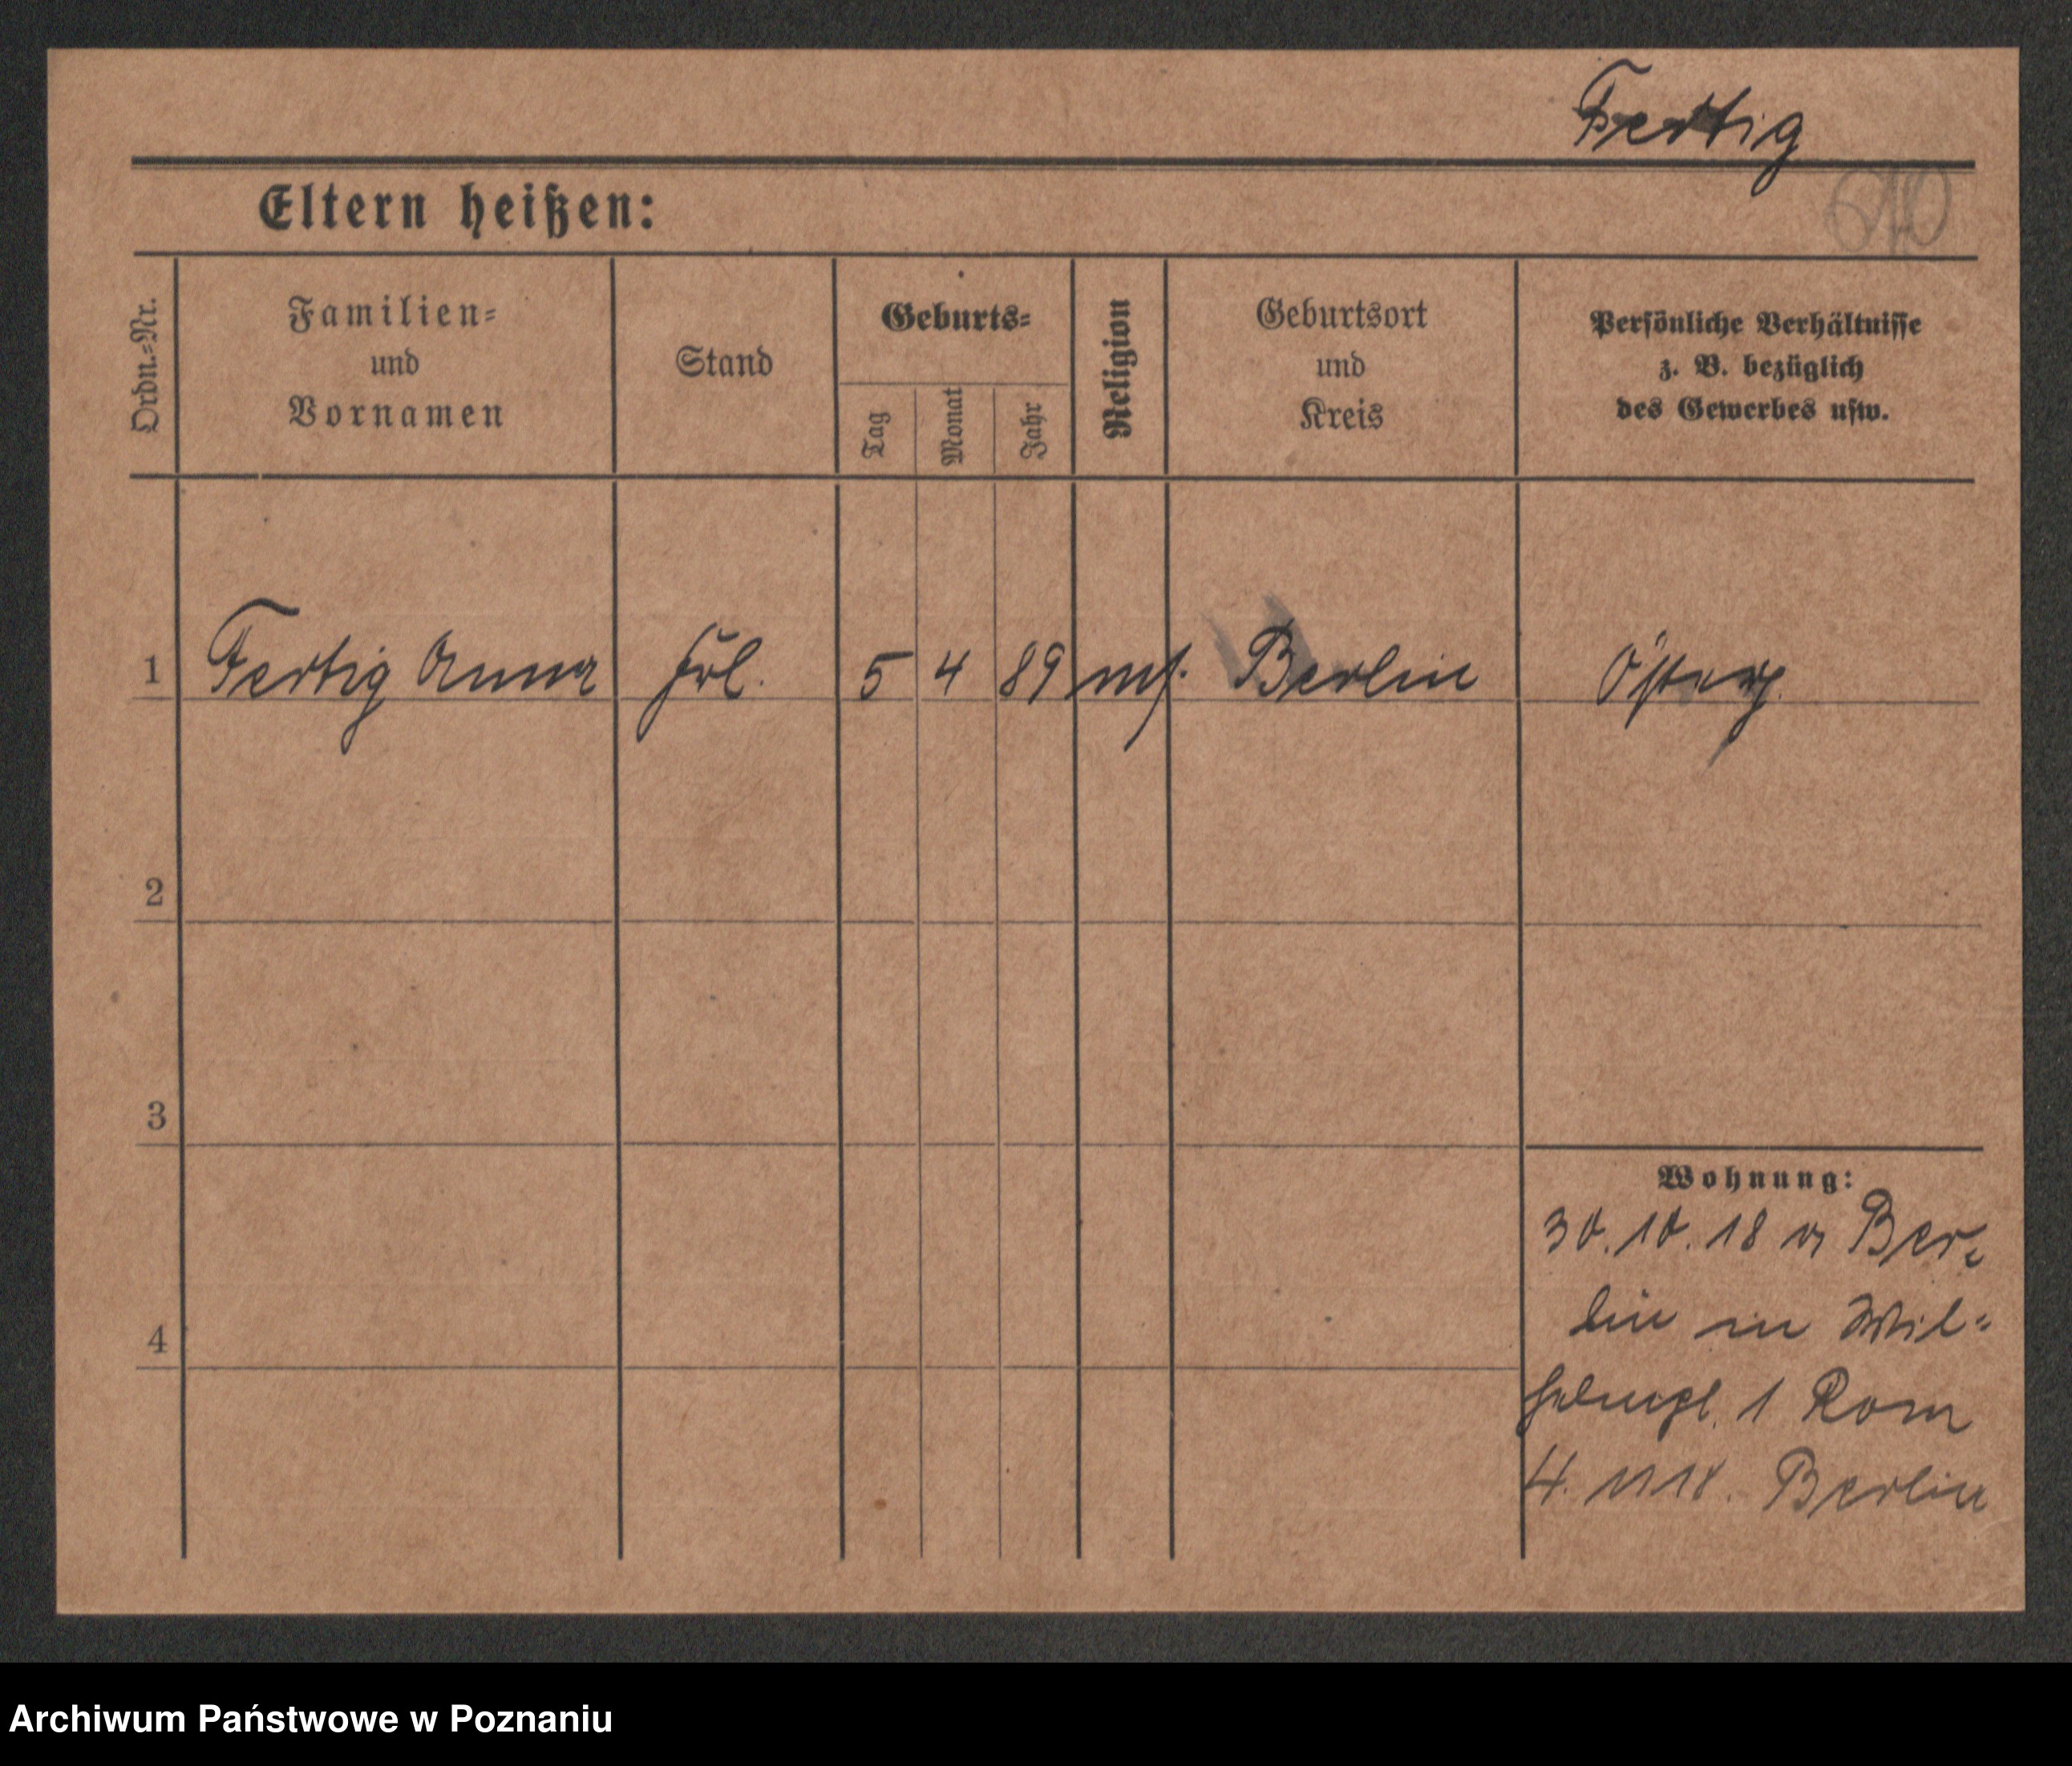 Fertig
Eltern heißen:
Ordn.-Nr.
Familien-
und
Vornamen
Stand
Geburts-
Tag
Monat
Jahr
Religion
Geburtsort
und
Kreis
Persönliche Verhältnisse
z. B. bezüglich
des Gewerbes usw.
1 Fertig Anna Frl. 5 4 89 Berlin
2
3
4
Wohnung:
30.10.18 v Ber-
lin in Wil-
helmpl. 1 Rom
4. 11 18. Berlin
Archiwum Państwowe w Poznaniu